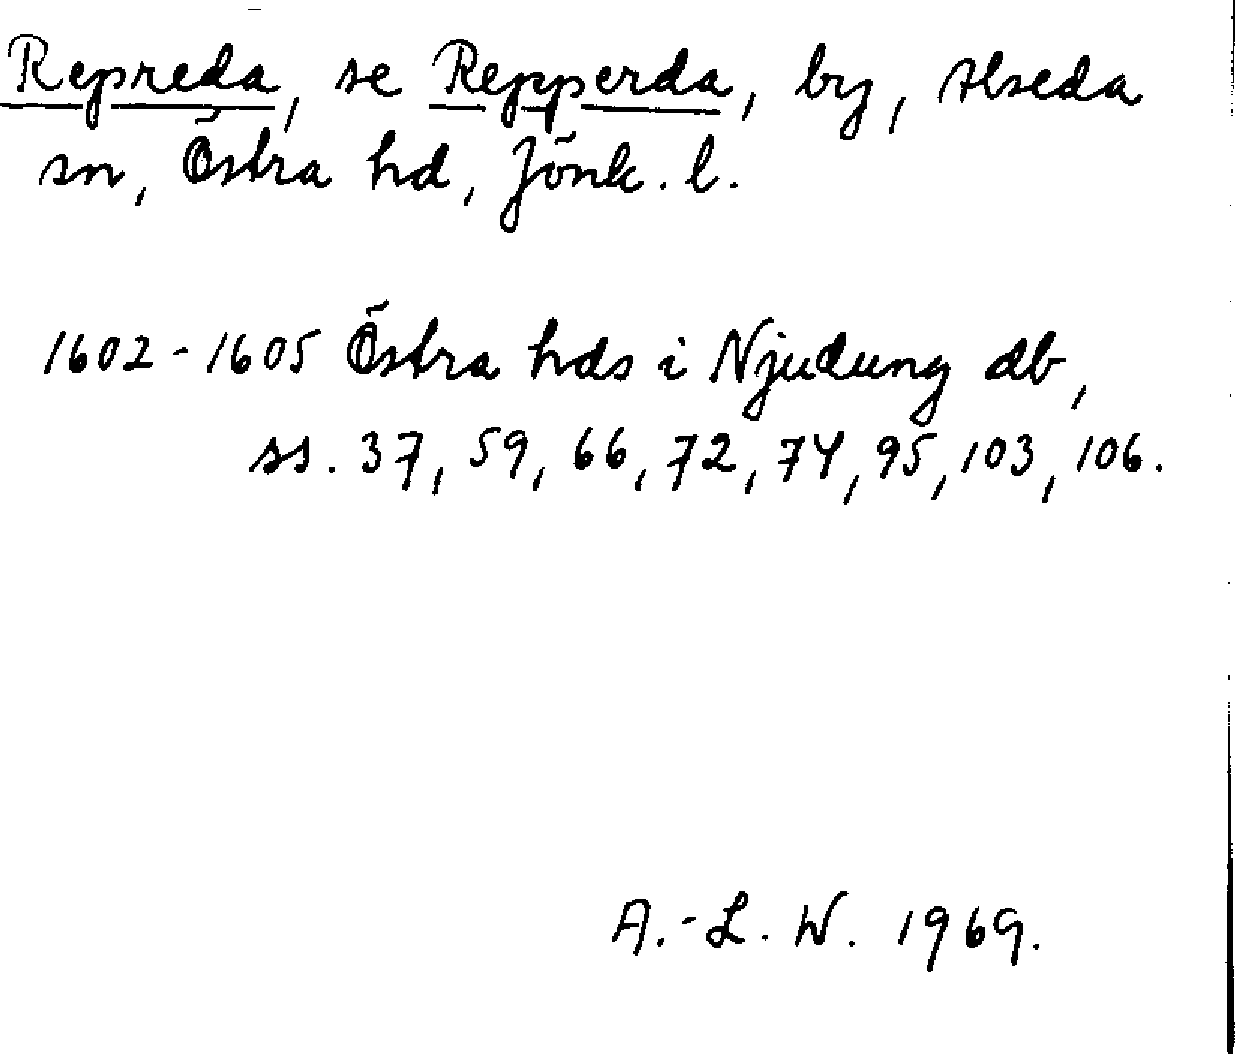 Repreda, se Repperda, by, Alseda
sn, Östra hd, Jönk. l.
1602-1605 Östra hds i Njudung db,
ss. 37, 59, 66, 72, 74, 95, 103, 106.
A.-L. W. 1969.